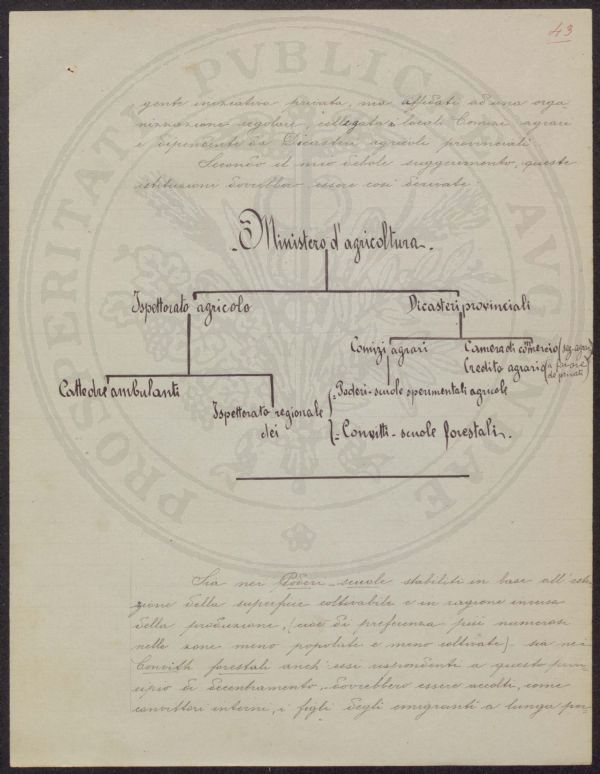 43
gente iniziativa privata, ma affidati ad una orga
nizzazione regolare, collegata ai locali Comizi agrari
e dipendente da Dicasteri agricoli provinciali
Secondo il mio debole suggerimento, queste
istituzioni dovrebbero essere così derivate
PROSPERITATI PVBLICAE AVGENDAE
Ministero d'agricoltura.
Ispettorato agricolo
Dicasteri provinciali
Comizi agrari
Camera di commercio (sez. agrar.)
Credito agrario (a favore de' privati)
Cattedre ambulanti
Ispettorato regionale
dei
Poderi-scuole sperimentali agricole
Convitti-scuole forestali.
Sia nei Poderi-scuole stabiliti in base all'esten
zione della superficie coltivabile e in ragione inversa
della produzione, (cioè di preferenza più numerosi
nelle zone meno popolate e meno coltivate) sia nei
Convitti forestali anch'essi rispondenti a questo prin-
cipio di decentramento, dovrebbero essere accolti, come
convittori interni, i figli degli emigranti a lunga per-